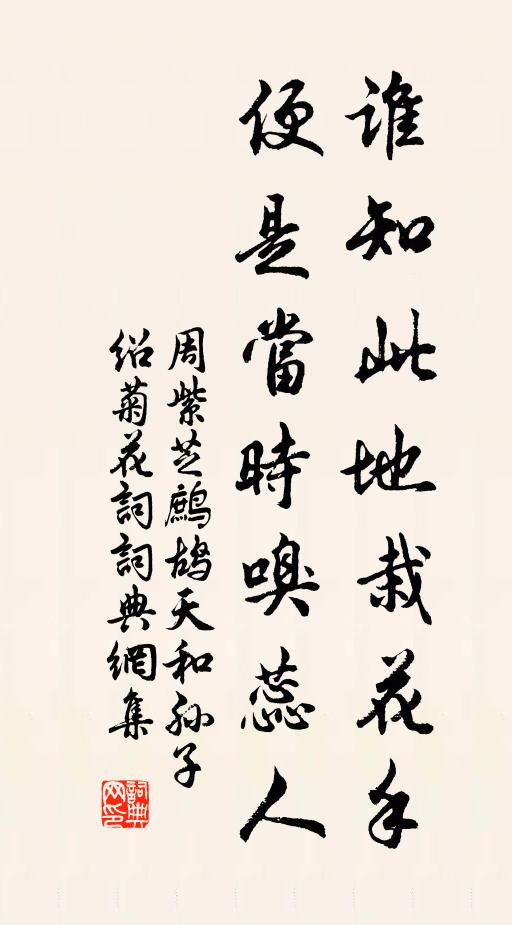 誰知此地栽花手
便是當時嗅蕊人
周紫芝鷓鴣天和孙子
绍菊花詞詞典網集
詞典网印